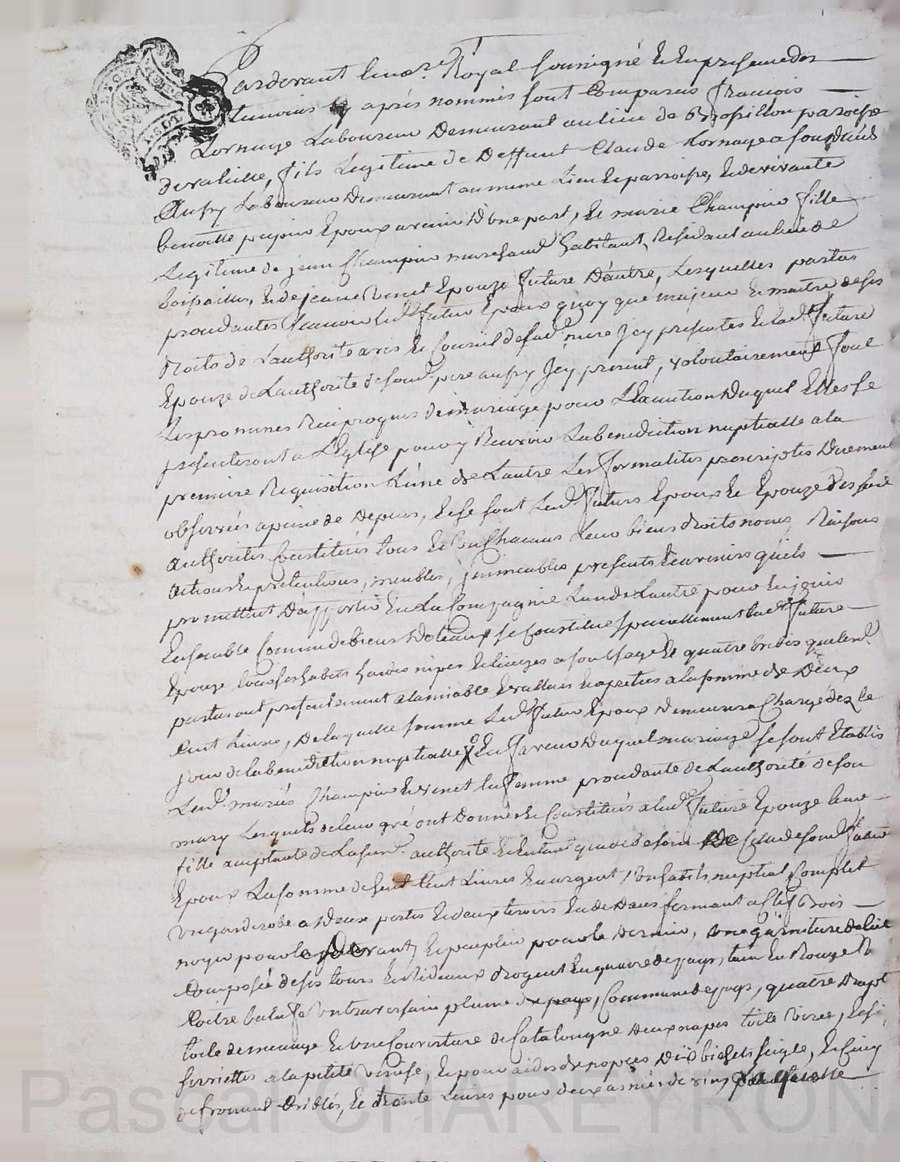 Pardevant le no.re Royal soussigné et en presence des
temoins cy après nommés sont comparus françois
Lornage Laboureur demeurant au lieu de paroisse
de valeille, fils Legitime de deffunt Claude Lornage a son décès
Laboureur demeurant au meme lieu et paroisse, et de vivante
benoitte pupier Epoux avenir d'une part, Et marie Champier fille
Legitime de jean Champier marchand habitant, Residant au lieu de
et de jeanne vinet Epouze future d'autre, Lesquelles parties
procedantes sçavoir led. futur Epoux quoy que majeur et maitre de ses
droits de L'authorité avis et Conseil de sad. mere Icy presente et lad. future
Epouze de L'authorité de sond. pere aussy Icy present, volontairement font
Les promesses Reciproques de mariage pour L'Execution duquel Elles se
presenteront a L'Eglise pour y Recevoir La benediction nuptialle a la
premiere Requisition L'une de L'autre Les formalités prescriptes duement
observées a peine de depens, Et se sont Lesd. futurs Epoux et Epouze
authorités Constitués tous et Chacuns Leurs biens droits noms Raisons
actions et pretentions, meubles, immeubles presents et avenirs qu'ils
promettent d'apporter En La Compagnie L'un de L'autre pour En jouir
Ensemble Comme de biens dotaux se Constitue specialement lad. future
Epouze tous ses habits hardes nipes et linges a son usage Et quatre brebis que les d.
parties ont presentement a lamiable Evallués et apretiés a la somme de deux
Cent Livres, de laquelle somme Led. futur Epoux demeurera Chargé dez le
jour de la benediction nuptialle En faveur duquel mariage se sont Etablis
Lesd. mariés Champier et vinet la femme procedante de L'authorité de son
mary Lesquels de leur gré ont donné et Constitués a lad. future Epouze leur
fille acceptante de Leur authorité Et Entant que de besoin de Celle de sond. futur
Epoux La somme de Cent Livres En argent, un habit nuptial Complet
un garderobe a deux portes et deux tiroirs En dedans fermant a Clef bois
noyer pour le devant Et peuplier pour le dernier, une garniture de lit
Composée de six tours de Rideaux
Coitre balasse un traversain plume de pays, Commune de pays, quatre draps
toile de menage Et une Couverture de Catalougne deux napes toile Et six
serviettes a la petite venise, Et pour aider de nopces bichets seigle, Et Cinq
de froment Criblés, Et trente Livres pour deux asnées de vins
Pascal CHAREYRON